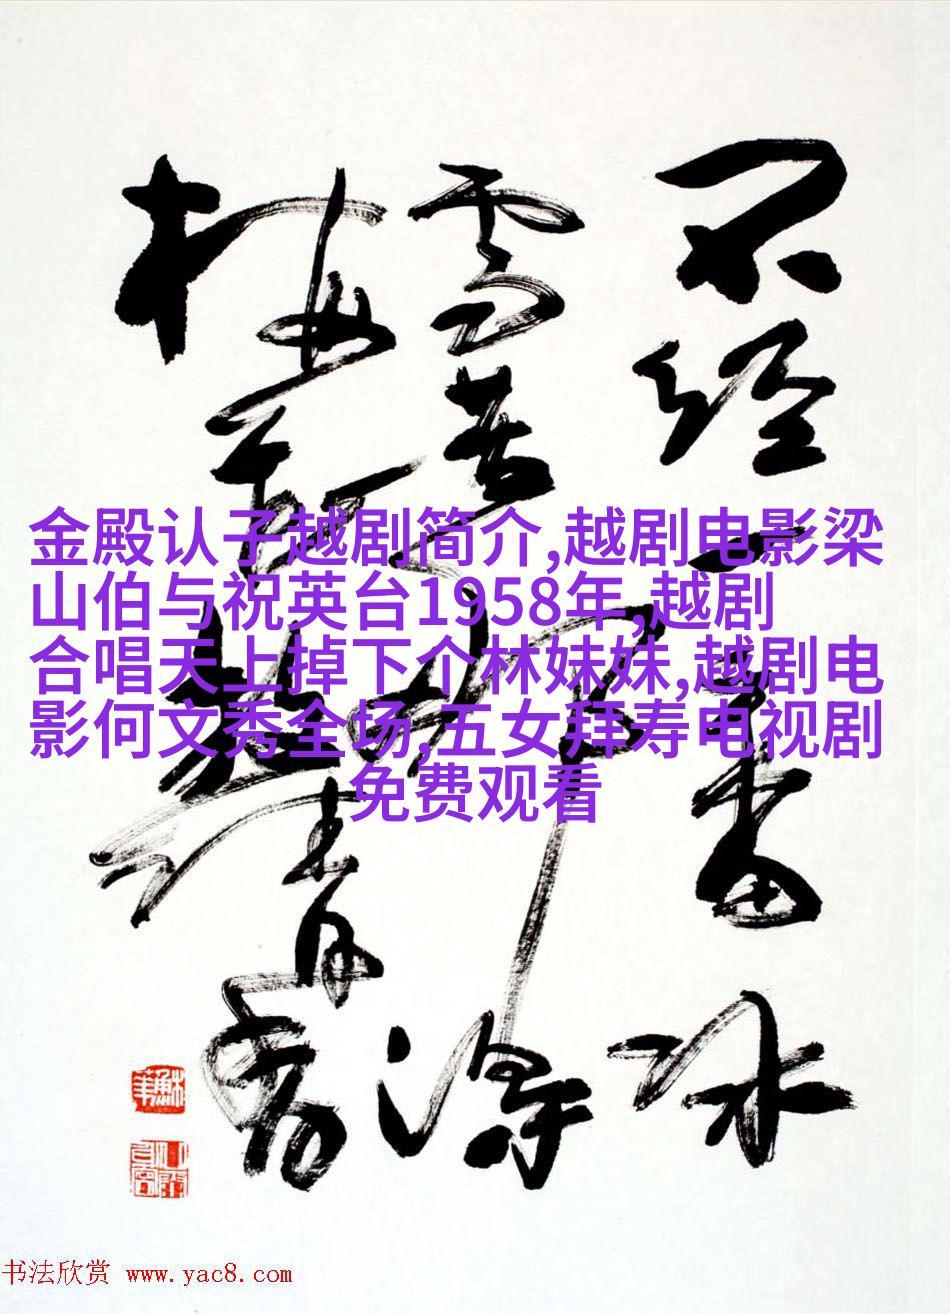 不经一番冰
雪苦
梅 清香
金殿认子越剧简介,越剧电影梁
山伯与祝英台1958年,越剧
合唱天上掉下个林妹妹,越剧电
影何文秀全场,五女拜寿电视剧
免费观看
书法欣赏 www.yac8.com